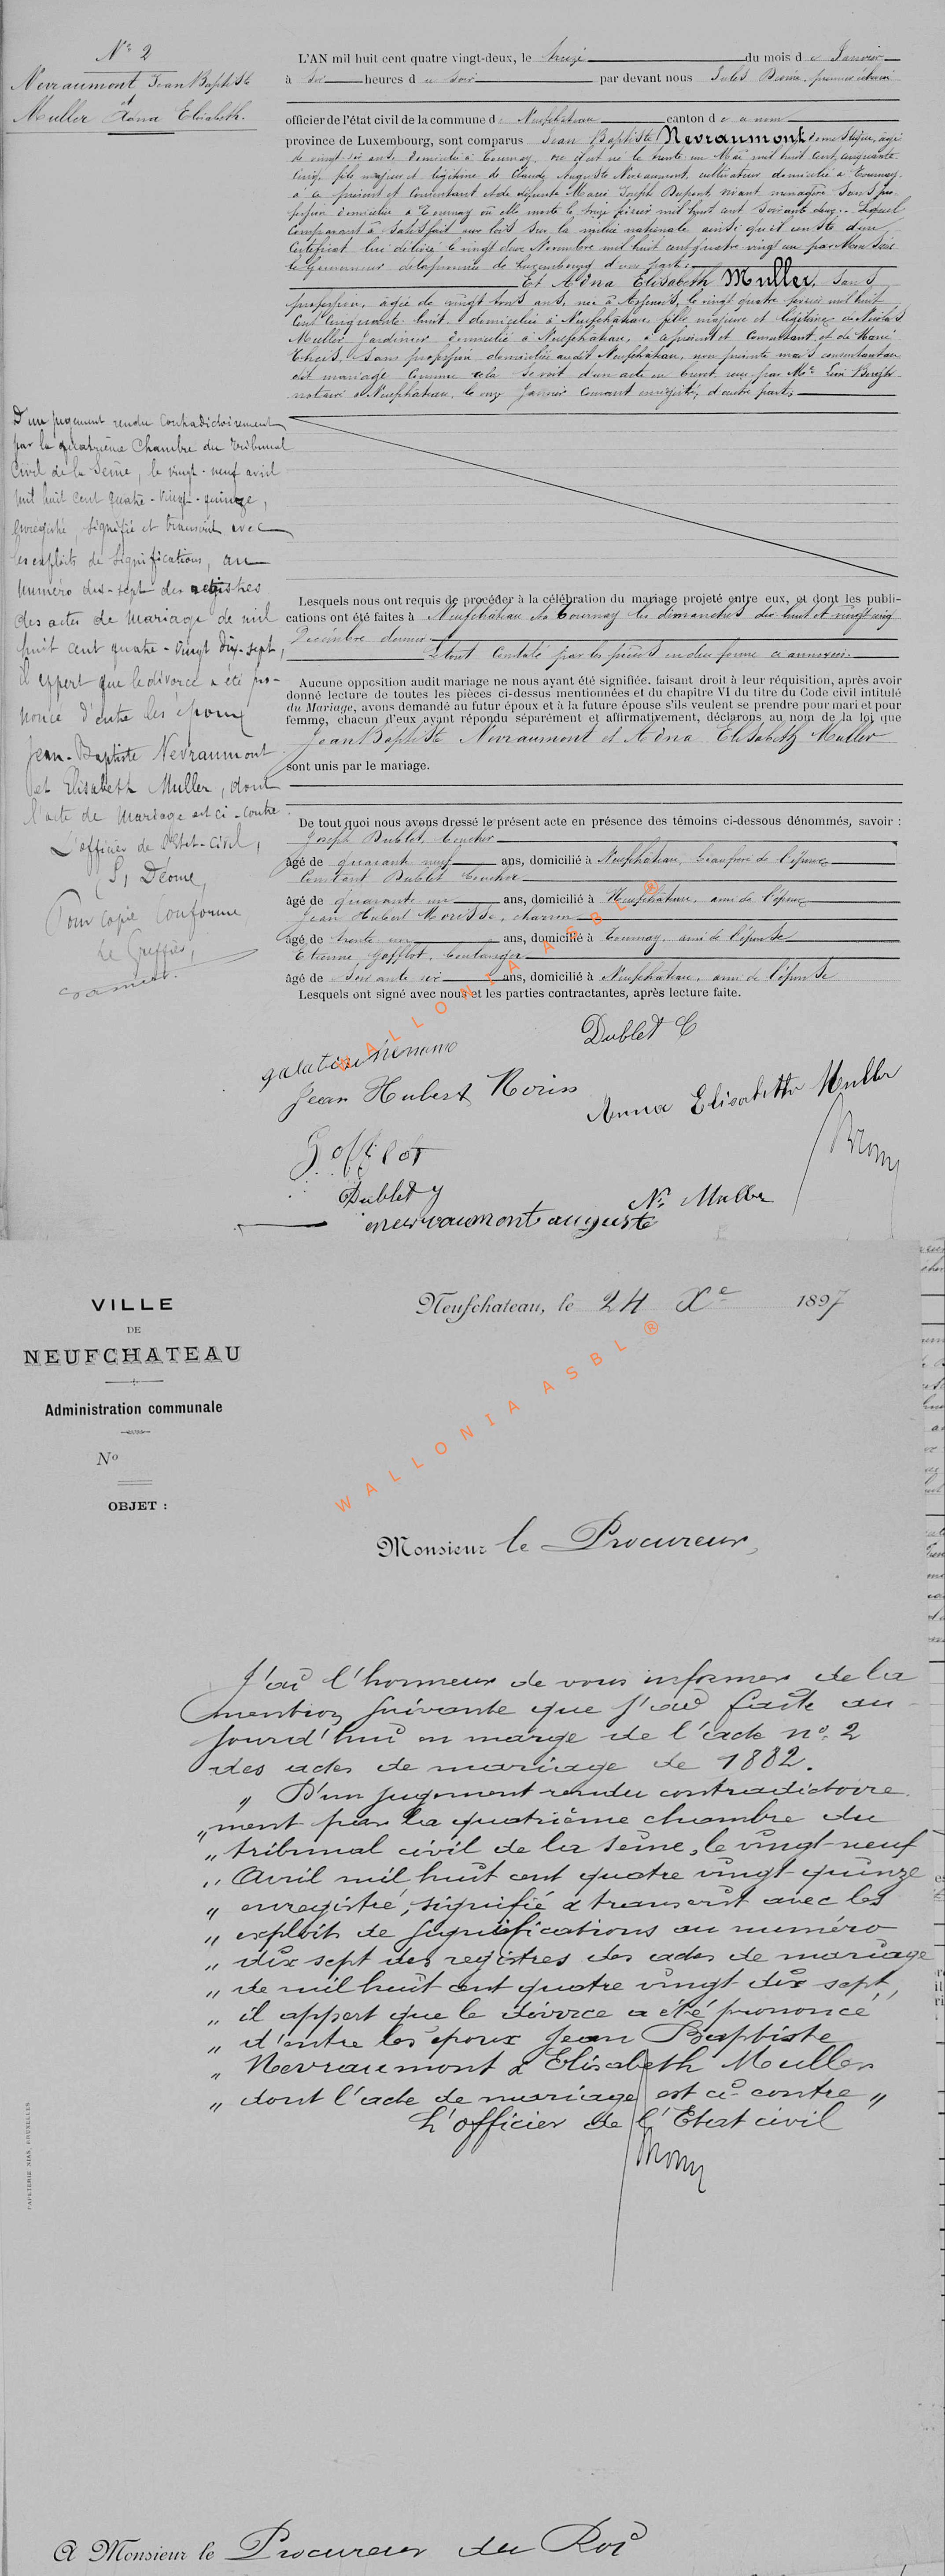 N° 2
Nevraumont Jean Baptiste
et
Muller Adna Elisabeth.
L'AN mil huit cent quatre vingt-deux, le treize du mois de Janvier
à six heures du soir par devant nous Jules
officier de l'état civil de la commune de Neufchâteau canton de ce nom
province de Luxembourg, sont comparus Jean Baptiste Nevraumont, domestique, âgé
de vingt six ans domicilié à Tournay, où il est né le trente un Mai mil huit cent cinquante
cinq, fils majeur et légitime de Claude Auguste Nevraumont, cultivateur domicilié à Tournay
à ce présent et consentant et de défunte Marie Joseph Dupont, vivant ménagère sans pro-
fession domiciliée à Tournay où elle morte le treize février mil huit cent soixante deux. Lequel
comparant a satisfait aux lois sur la milice nationale ainsi qu'il conste d'un
certificat lui délivré le vingt deux Novembre mil huit cent quatre vingt un par Monsieur
le Gouverneur de la province de Luxembourg d'une part;
Et Adna Elisabeth Muller, sans
profession, âgée de vingt trois ans, née à Aspenois, le vingt quatre février mil huit
cent cinquante huit domiciliée à Neufchâteau, fille majeure et légitime de Nicolas
Muller jardinier domicilié à Neufchâteau, à ce présent et consentant et de Marie
sans profession domiciliée audit Neufchâteau, non présente mais consentant au
dit mariage comme cela se voit d'un acte en brevet reçu par Me Léon
notaire à Neufchâteau, le onze Janvier courant enregistré, d'autre part;
D'un jugement rendu contradictoirement
par la quatrième Chambre du Tribunal
Civil de la Seine, le vingt-neuf avril
mil huit cent quatre-vingt-quinze,
Enregistré, signifié et transcrit avec
les exploits de significations, au
numéro dix-sept des registres
des actes de mariage de mil
huit cent quatre-vingt dix-sept,
il appert que le divorce a été pro-
noncé d'entre les époux
Jean-Baptiste Nevraumont
et Elisabeth Muller, dont
l'acte de mariage est ci-contre
L'officier de l'Etat-Civil,
Pour Copie Conforme
Le Greffier,
Lesquels nous ont requis de procéder à la célébration du mariage projeté entre eux, et dont les publi-
cations ont été faites à Neufchâteau et à Tournay les dimanches dix huit et vingt cinq
Décembre dernier
Le tout constaté par les pièces en due forme ci annexées.
Aucune opposition audit mariage ne nous ayant été signifiée. faisant droit à leur réquisition, après avoir
donné lecture de toutes les pièces ci-dessus mentionnées et du chapitre VI du titre du Code civil intitulé
du Mariage, avons demandé au futur époux et à la future épouse s'ils veulent se prendre pour mari et pour
femme, chacun d'eux ayant répondu séparément et affirmativement, déclarons au nom de la loi que
Jean Baptiste Nevraumont et Adna Elisabeth Muller
sont unis par le mariage.
De tout quoi nous avons dressé le présent acte en présence des témoins ci-dessous dénommés, savoir :
Joseph Dublet, boucher
âgé de quarante neuf ans, domicilié à Neufchâteau, beaufrère de l'épouse
Constant Dublet boucher
âgé de quarante un ans, domicilié à Neufchâteau, ami de l'épouse
Jean Hubert charron
âgé de trente un ans, domicilié à Tournay, ami de l'épouse
Etienne Gofflot, boulanger
âgé de soixante six ans, domicilié à Neufchâteau, ami de l'épouse
Lesquels ont signé avec nous et les parties contractantes, après lecture faite.
Dublet C
Jean Hubert
Anna Elisabetha Muller
Gofflot
Dublet J
N. Muller
nevraumont auguste
WALLONIA ASBL ®
VILLE
DE
NEUFCHATEAU
Administration communale
N°
OBJET :
Neufchateau, le 24 Xe 1897
WALLONIA ASBL ®
Monsieur le Procureur,
J'ai l'honneur de vous informer de la
mention suivante que j'ai faite au
jourd'hui en marge de l'acte n° 2
des actes de mariage de 1882.
„ D'un jugement rendu contradictoire
„ ment par la quatrième chambre du
„ tribunal civil de la Seine, le vingt-neuf
„ Avril mil huit cent quatre vingt quinze
„ enregistré, signifié & transcrit avec les
„ exploits de significations au numéro
„ dix sept des registres des actes de mariage
„ de mil huit cent quatre vingt dix sept,
„ il appert que le divorce a été prononcé
„ d'entre les époux Jean Baptiste
„ Nevraumont & Elisabeth Muller
„ dont l'acte de mariage est ci-contre „
L'officier de l'Etat civil
PAPETERIE NIAS, BRUXELLES
A Monsieur le Procureur du Roi